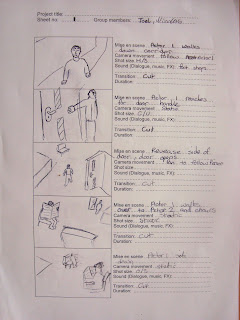 Project title
Sheet no. 1 Group members: Joel,
Mise en scene Actor 1 walks
down corridor
Camera movement follow
Shot size M/S
Sound (Dialogue, music, FX)
Transition: Cut
Duration:
Mise en scene Actor 1 reaches
for door handle
Camera movement Static
Shot size C/U
Sound (Dialogue, music, FX)
Transition: Cut
Duration
Mise en scene Reverse side of
door, door opens
Camera movement
Shot size
Sound (Dialogue, music, FX)
Transition: Cut
Duration:
Mise en scene Actor 1 walks
over to Actor 2 and
Camera movement static
Shot size
Sound (Dialogue, music, FX)
Transition: Cut
Duration
Mise en scene Actor 1 sits
down
Camera movement static
Shot size
Sound (Dialogue, music, FX)
Transition: Cut
Duration: